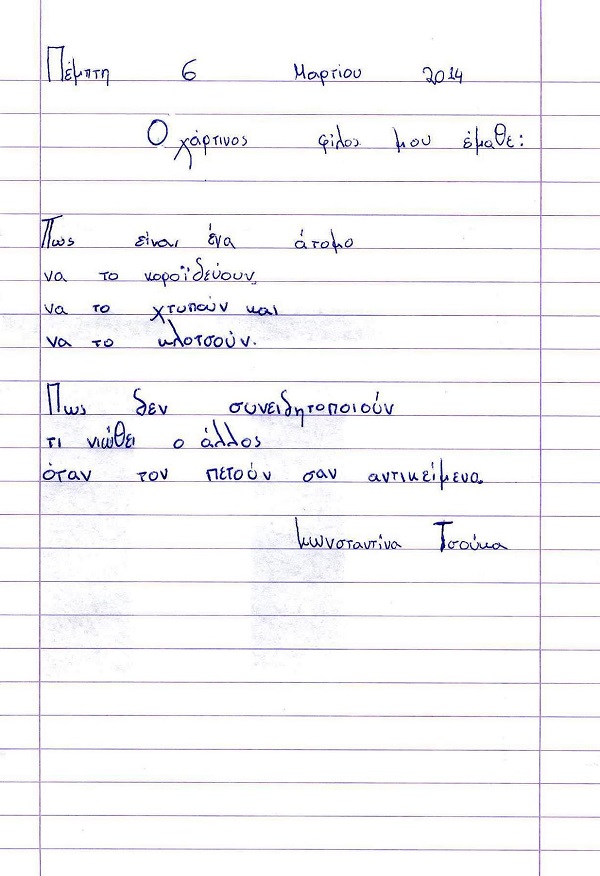 Πέμπτη 6 Μαρτίου 2014
Ο χάρτινος φίλος μου έμαθε:
Πώς είναι ένα άτομο
να το κοροϊδεύουν,
να το χτυπούν και
να το κλοτσούν.
Πως δεν συνειδητοποιούν
τι νιώθει ο άλλος
όταν τον πετούν σαν αντικείμενο.
Κωνσταντίνα Τσούκα